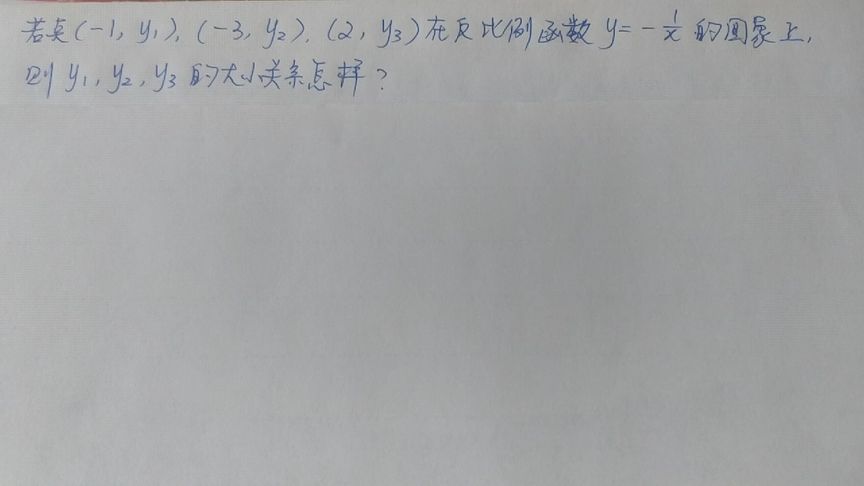 若点(-1, y₁), (-3, y₂), (2, y₃)在反比例函数 y = -1/x 的图象上,
则 y₁, y₂, y₃ 的大小关系怎样?